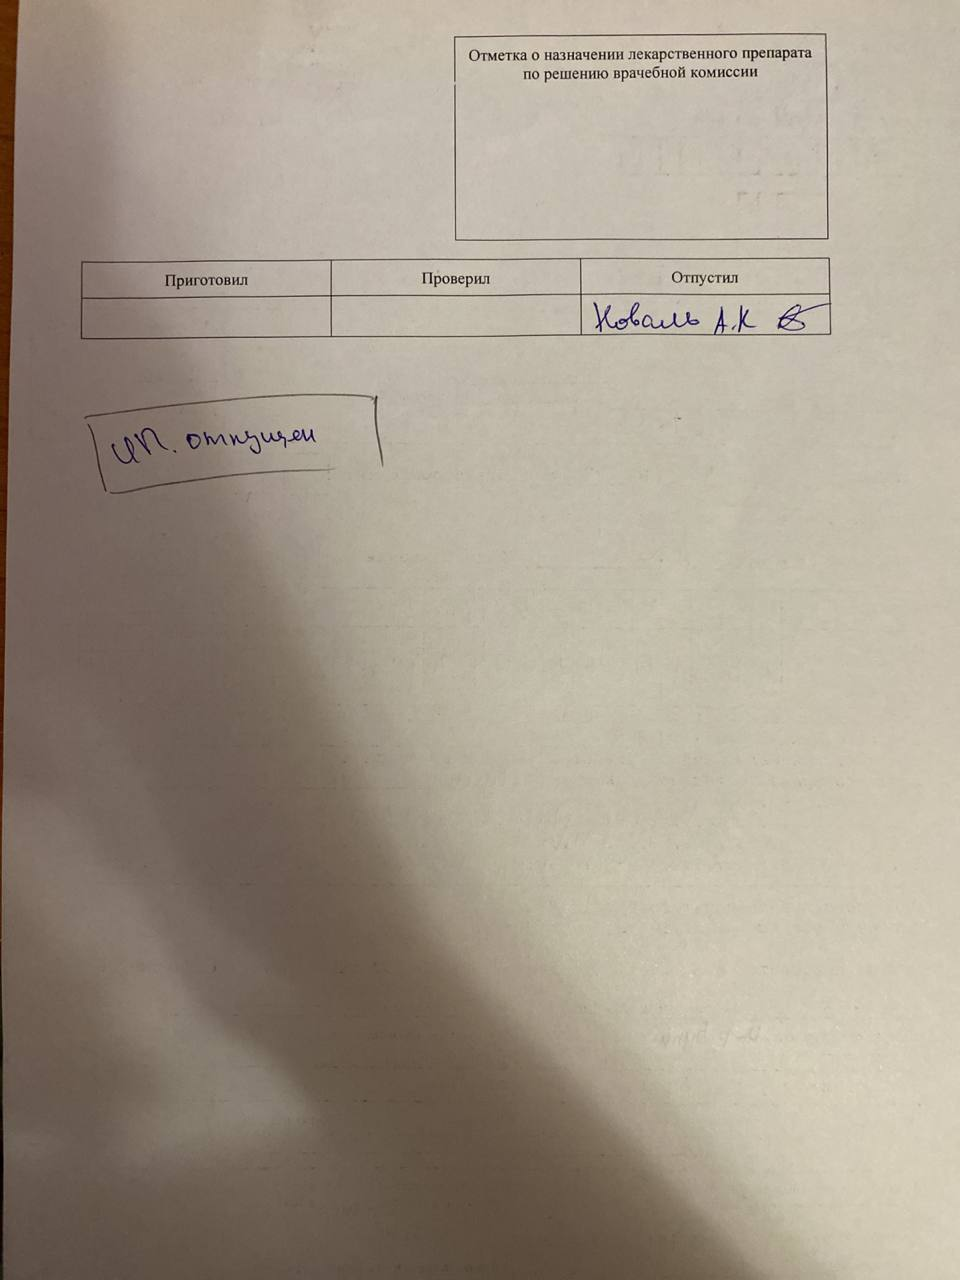 Отметка о назначении лекарственного препарата
по решению врачебной комиссии
Приготовил Проверил Отпустил
Коваль А.К
ИП. отпущен